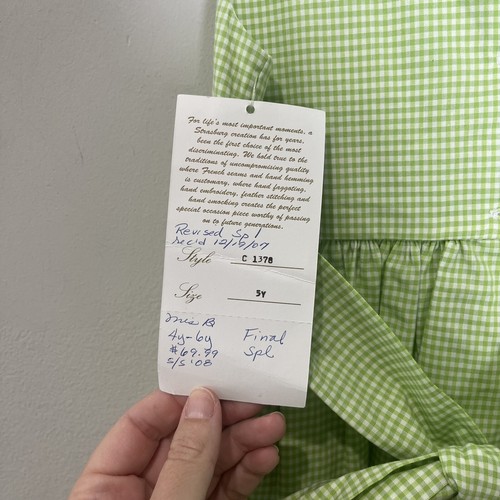 For life's most important moments, a
Strasburg creation has for years,
been the first choice of the most
discriminating. We hold true to the
traditions of uncompromising quality
where French seams and hand hemming
is customary, where hand faggoting,
hand embroidery, feather stitching and
hand smocking creates the perfect
special occasion piece worthy of passing
on to future generations.
Revised Spl
Rec'd 12/19/07
Style C 1378
Size 5Y
4y-6y
$69.99
S/S '08
Final
Spl